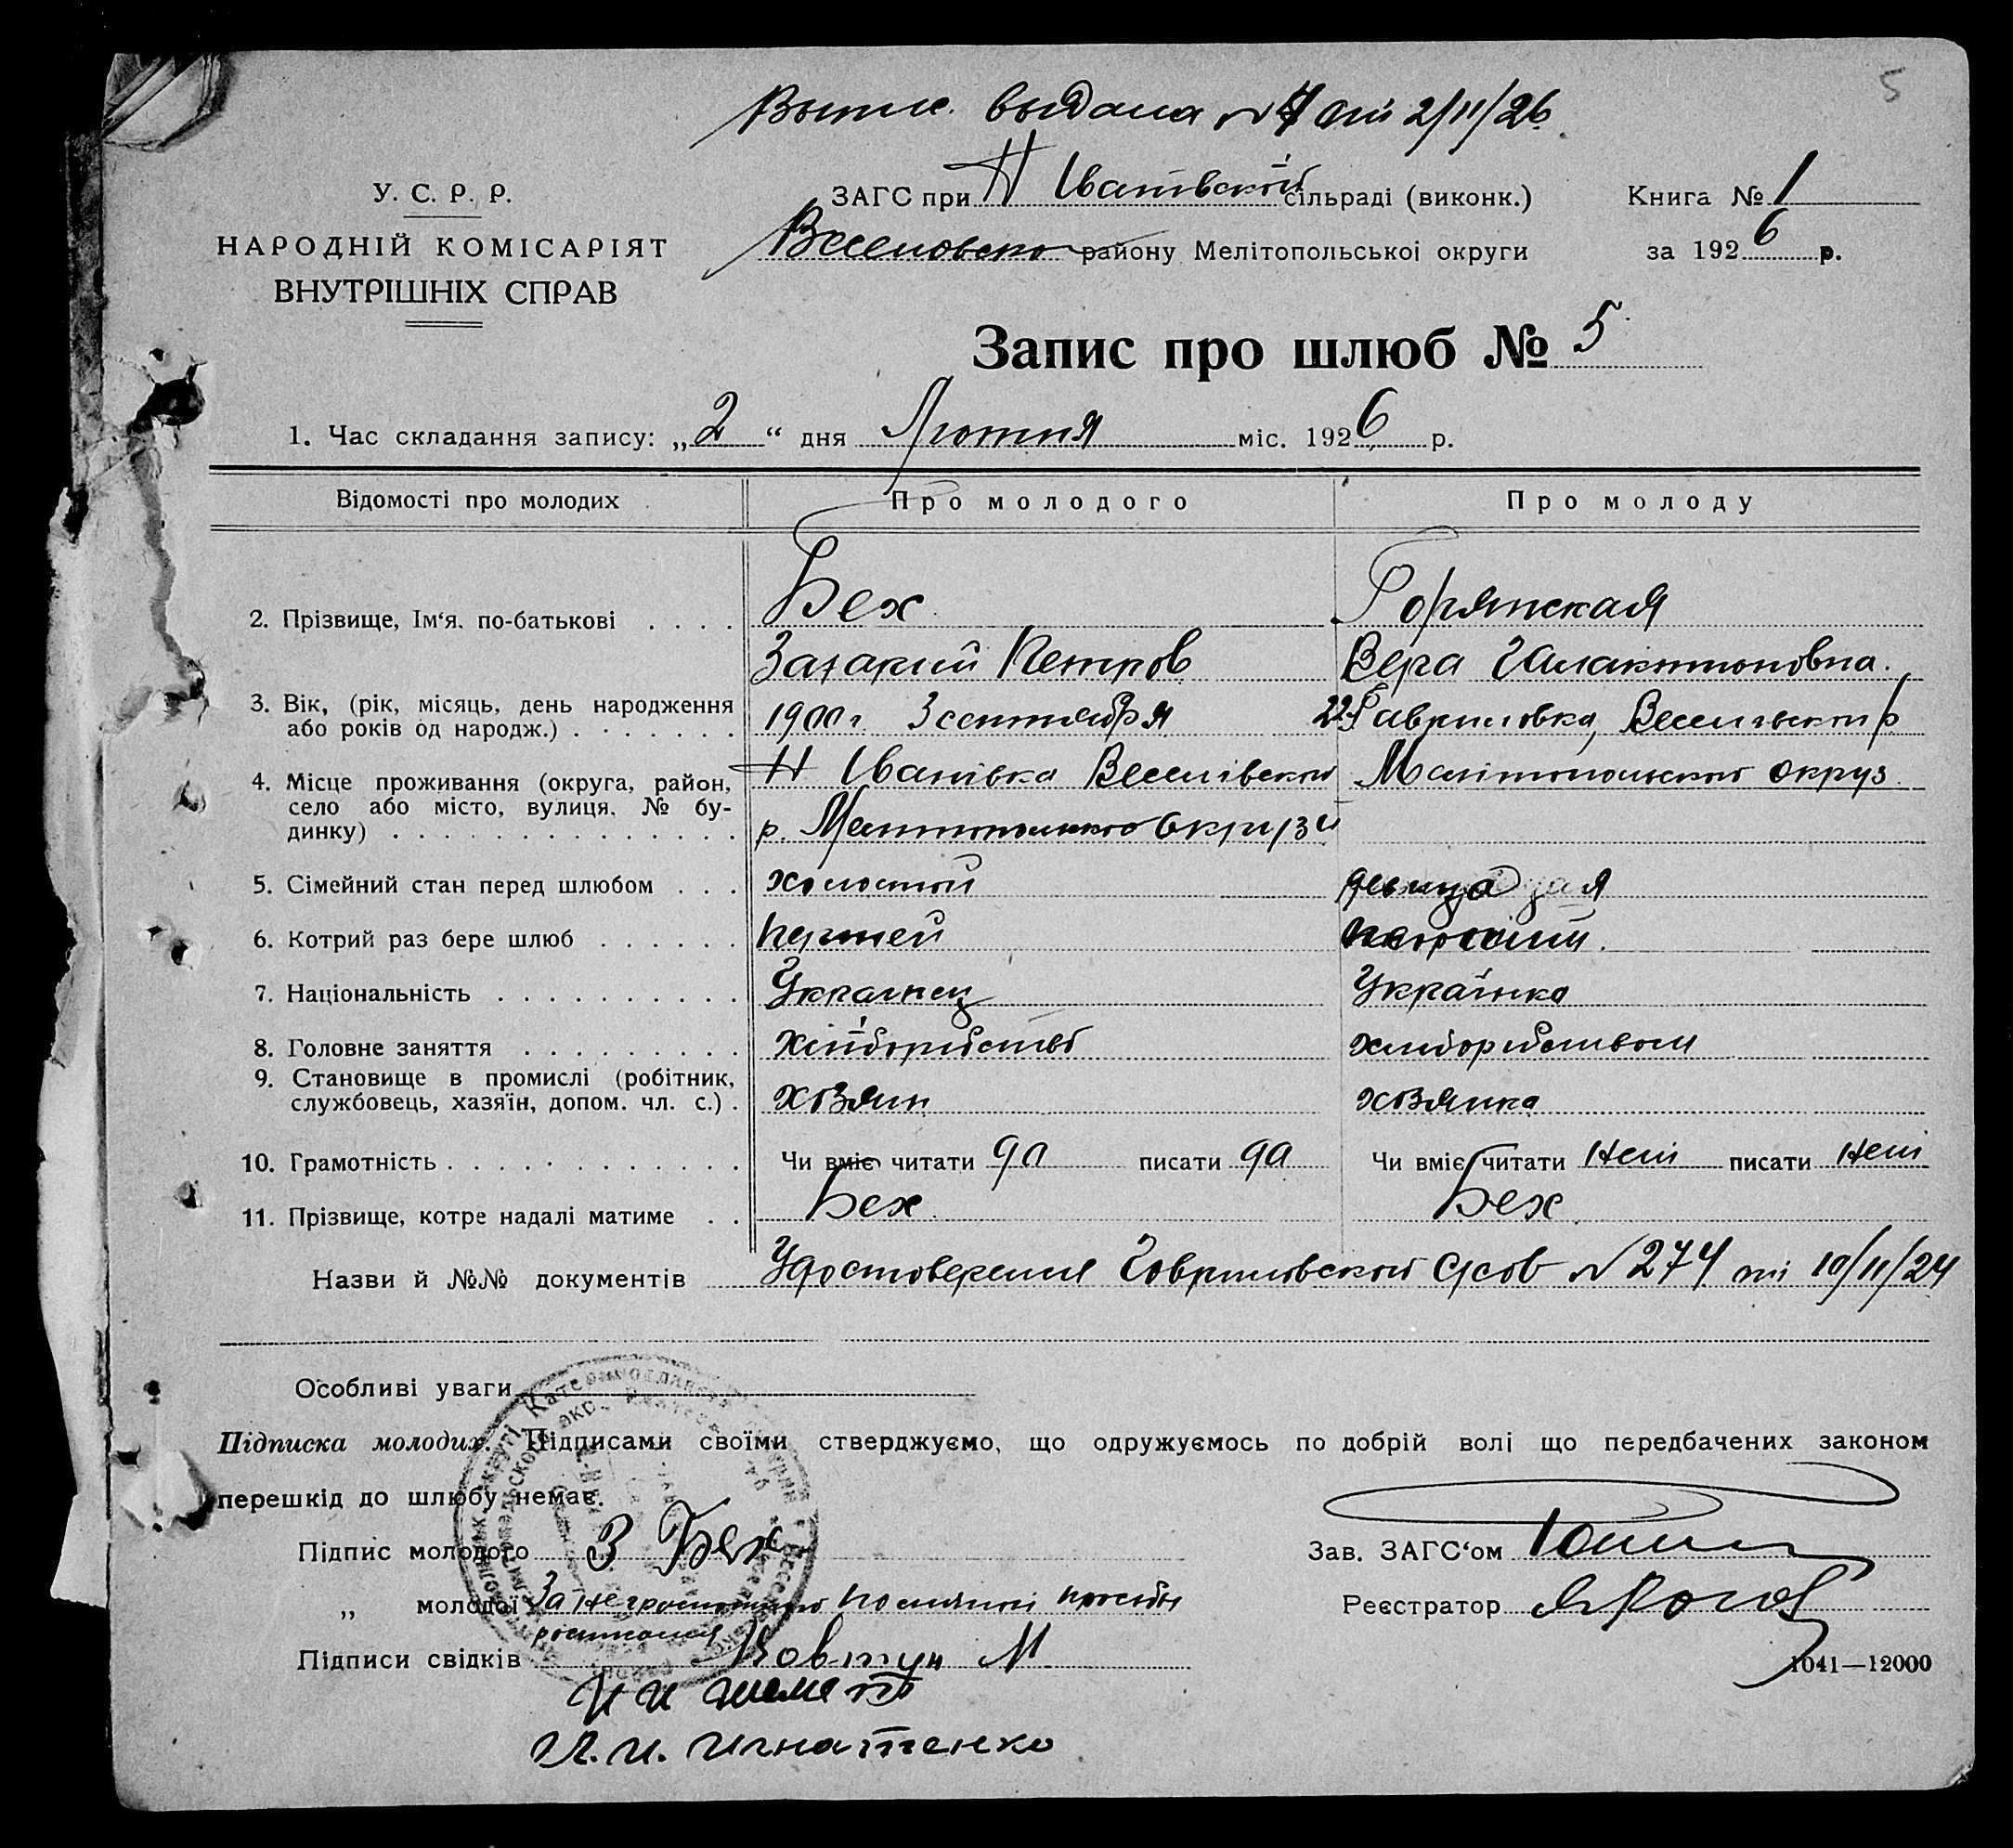 Выпис. выдана № 7 от 2/II/26.
5
У. С. Р. Р.
НАРОДНІЙ КОМІСАРІЯТ
ВНУТРІШНІХ СПРАВ
ЗАГС при Н Иванівской сільраді (виконк.)
Книга № 1
Веселовско району Мелітопольської округи
за 1926 р.
Запис про шлюб № 5
1. Час складання запису: „2“ дня Лютня міс. 1926 р.
Відомості про молодих
Про молодого
Про молоду
2. Прізвище, Ім‘я, по-батькові . . . .
Бех
Горянская
Захарий Петров
Вера Галактионовна.
3. Вік, (рік, місяць, день народження або років од народж.) . . . . . . .
1900 г. 3 сентября
22. Гавриловка, Веселівскои р
4. Місце проживання (округа, район, село або місто, вулиця, № будинку) . . . . . . . . . . . . . . .
Н Іванівка Веселівскои
Мелітопольскои округ.
р. Мелитопольскои Округи
5. Сімейний стан перед шлюбом . . .
холостий
девица
6. Котрий раз бере шлюб . . . . . .
первий
7. Національність . . . . . . . . . .
Украинец
Українка
8. Головне заняття . . . . . . . . .
хліборобство
хлиборобством
9. Становище в промислі (робітник, службовець, хазяїн, допом. чл. с.) .
хозяин
хозяика
10. Грамотність . . . . . . . . . . . . .
Чи вміє читати да писати да
Чи вміє читати нет писати нет
11. Прізвище, котре надалі матиме . .
Бех
Бех
Назви й №№ документів Удостоверения Гавриловской с/сов № 274 от 10/II/24
Особливі уваги
Підписка молодих. Підписами своїми стверджуємо, що одружуємось по добрій волі що передбачених законом
перешкід до шлюбу немає.
Підпис молодого З Бех
Зав. ЗАГС‘ом
„ молодої За неграмотного по личної просьби
росписался
Реєстратор
Підписи свідків Ковтун М
1041—12000
И. И. Игнатенко